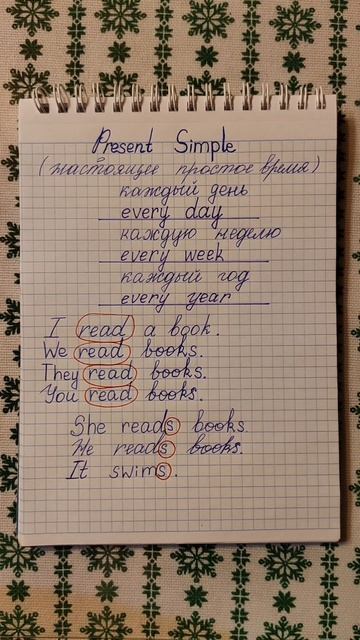 Present Simple
(настоящее простое время)
каждый день
every day
каждую неделю
every week
каждый год
every year
I read a book.
We read books.
They read books.
You read books.
She reads books.
He reads books.
It swims.